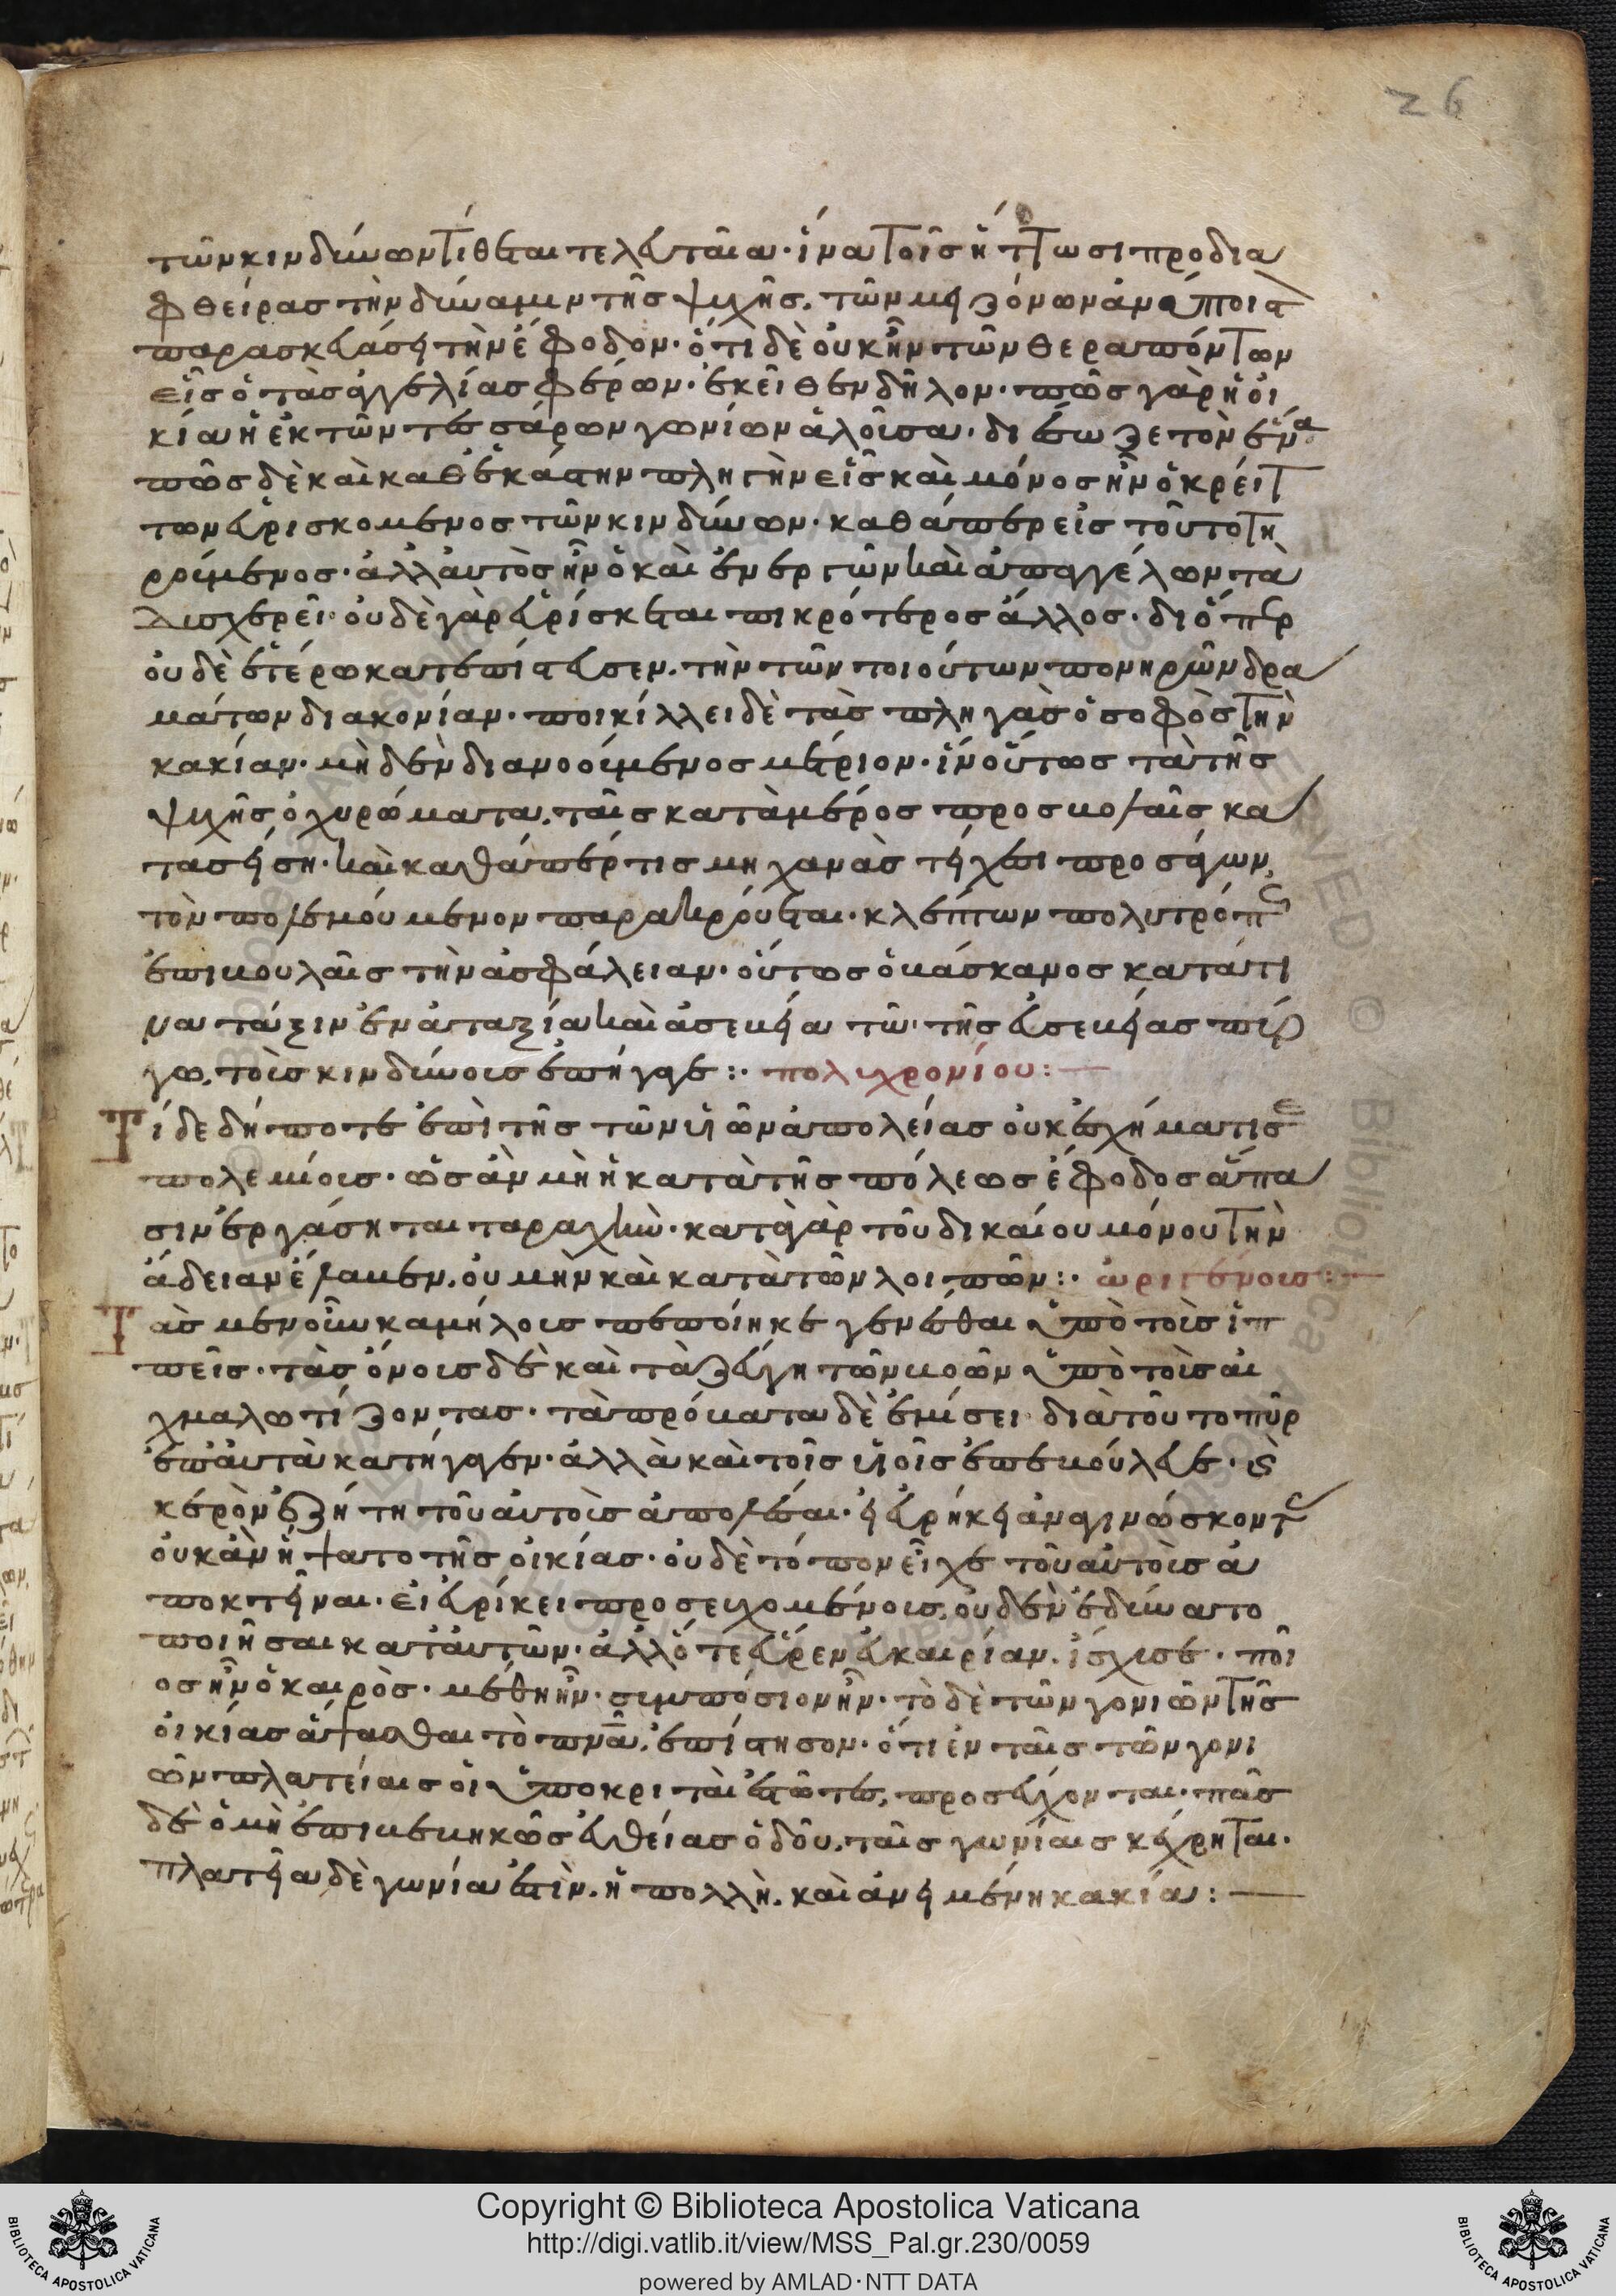 26
τῶν κινδύνων τίθεται τελευταῖα· ἵνα τοῖς ἥττωσι προδια
φθείρας τὴν δύναμιν τῆς ψυχῆς. τῶν μειζόνων ἀναποιστ
παρασκευάσει τὴν ἔφοδον· ὅτι δὲ οὐκ ἦν τῶν θεραπόντων
εἷς ὁ τὰς ἀγγελίας φέρων· ἐκεῖθεν δῆλον· πῶς γὰρ ἡ οἰ
κία ἡ ἐκ τῶν τεσσάρων γωνιῶν ἁλοῦσα· διέσωζε τὸν ἕνα
πῶς δὲ καὶ καθ ἑκάστην πληγὴν εἷς καὶ μόνος ἦν ὁ κρείτ
των εὑρισκόμενος τῶν κινδύνων· καθάπερ εἰς τοῦτο τη
ρούμενος· ἀλλ αὐτὸς ἦν ὁ καὶ ἐνεργῶν καὶ ἀπαγγέλων τὰ
δυσχερεῖ· οὐδὲ γὰρ εὑρίσκεται πικρότερος ἄλλος· διόπερ
οὐδὲ ἑτέρω κατεπίστευσεν. τὴν τῶν τοιούτων πονηρῶν δρα
μάτων διακονίαν· ποικίλλει δὲ τὰς πληγὰς ὁ σοφὸς τὴν
κακίαν· μηδὲν διανοούμενος μέτριον· ἵν οὕτως τὰ τῆς
ψυχῆς ὀχυρώματα. ταῖς κατὰ μέρος προσβολαῖς κα
τασείση· καὶ καθάπερ τις μηχανὰς τείχει προσάγων,
τὸν πολεμούμενον παρακρούεται· κλέπτων πολυτρόποις
ἐπιβουλαῖς τὴν ἀσφάλειαν· οὕτως ὁ βάσκανος κατά τι
να τάξιν ἐν ἀταξία καὶ ἀσεβεία τῶ τῆς εὐσεβείας πύρ
γω. τοὺς κινδύνους ἐπήγαγε:· πολυχρονίου:
Τί δε δήποτε ἐπὶ τῆς τῶν υἱῶν ἀπολείας οὐκ ἐσχημάτισε
πολεμίους· ὡς ἂν μὴ ἡ κατὰ τῆς πόλεως ἔφοδος ἅπα
σιν ἐργάσηται ταραχὴν· κατὰ γὰρ τοῦ δικαίου μόνου τὴν
ἄδειαν ἔλαβεν. οὐ μὴν καὶ κατὰ τῶν λοιπῶν:· ὠριγένους:
Τὰς μὲν οὖν καμήλους πεποίηκε γενέσθαι ὑπὸ τοὺς ἱπ
πεῖς· τὰς ὄνους δὲ καὶ τὰ ζεύγη τῶν βοῶν ὑπὸ τοὺς αἰ
χμαλωτίζοντας· τὰ πρόβατα δὲ ἐμίσει· διὰ τοῦτο πῦρ
ἐπ αὐτὰ κατήγαγεν· ἀλλὰ καὶ τοῖς υἱοῖς ἐπεβούλευε· καὶ
καιρὸν ἐζήτη τοῦ αὐτοὺς ἀπολέσαι· εἰ εὑρήκει ἀναγινώσκοντας
οὐκ ἂν ἥψατο τῆς οἰκίας· οὐδὲ τόπον εἶχε τοῦ αὐτοὺς ἀ
ποκτεῖναι· εἰ εὑρίκει προσευχομένους, οὐδὲν ἐδύνατο
ποιῆσαι κατ αὐτῶν· ἀλλ ὅτε εὗρεν εὐκαιρίαν. ἴσχυσε· ποῖ
ος ἦν ὁ καιρὸς· μέθη ἦν· συμπόσιον ἦν· τὸ δὲ τῶν γονιῶν τῆς
οἰκίας ἅψασθαι τὸ πνᾶ. ἐπίστησον· ὅτι ἐν ταῖς τῶν γονι
ῶν πλατείαις οἱ ὑποκριταὶ ἑστῶτες, προσεύχονται· πᾶς
δὲ ὁ μὴ ἐπιβεβηκὼς εὐθείας ὁδοῦ. ταῖς γωνίαις κέχρηται·
πλατεῖα δὲ γωνία ἐστὶν. ἡ πολλὴ. καὶ ἀνειμένη κακία:
Copyright © Biblioteca Apostolica Vaticana
http://digi.vatlib.it/view/MSS_Pal.gr.230/0059
powered by AMLAD·NTT DATA